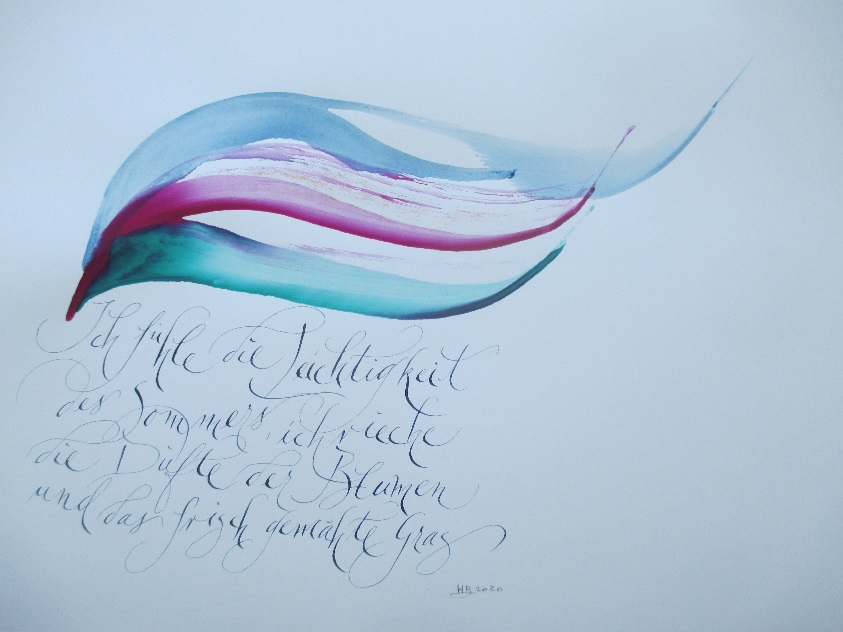 Ich fühle die Leichtigkeit
des Sommers, ich rieche
die Düfte der Blumen
und das frisch gemähte Gras
HB 2020